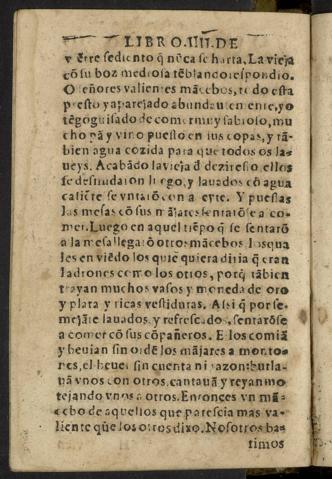 LIBRO.IIII.DE
vẽtre sediento q̃ nũca se harta. La vieja
cõ su boz medrosa tẽblando respondio.
O señores valientes mãcebos, todo esta
presto y aparejado abundantemente, yo
tẽgo guisado de comer muy sabroso, mu
cho pã y vino puesto en sus copas, y tã-
bien agua cozida para que todos os la-
ueys. Acabãdo la vieja đ dezir esto, ellos
se desnudaron luego, y lauados cõ agua
caliẽte se vntarõ con azeyte. Y puestas
las mesas cõ sus mãjares sentarõse a co-
mer. Luego en aquel tiẽpo q̃ se sentarõ
a la mesa llegarõ otros mãcebos, los qua
les en viẽdo los quiẽ quiera diria q̃ eran
ladrones como los otros, porq̃ tãbien
trayan muchos vasos y moneda de oro
y plata y ricas vestiduras. Assi q̃ por se-
mejãte lauados, y refrescados, sentarõse
a comer cõ sus cõpañeros. E los comiã
y beuian sin ordẽ los mãjares a monto-
nes, el beuer sin cuenta ni razon: burla-
uã vnos con otros, cantauã y reyan mo
tejando vnos a otros. Entonces vn mã-
cebo de aquellos que parescia mas va-
liente que los otros dixo. Nosotros ba-
timos